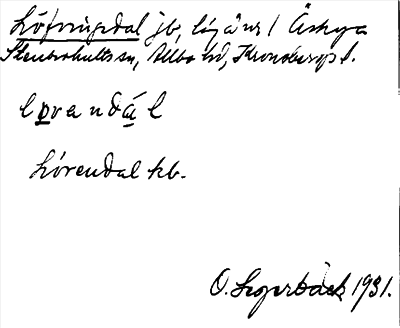 Lövingsdal jb, läg. å us / Åskya
Stenbrohults sn, Allbo hd, Kronobergs l.
lovandál
Lórendal kb.
O. Segerbäck 1931.